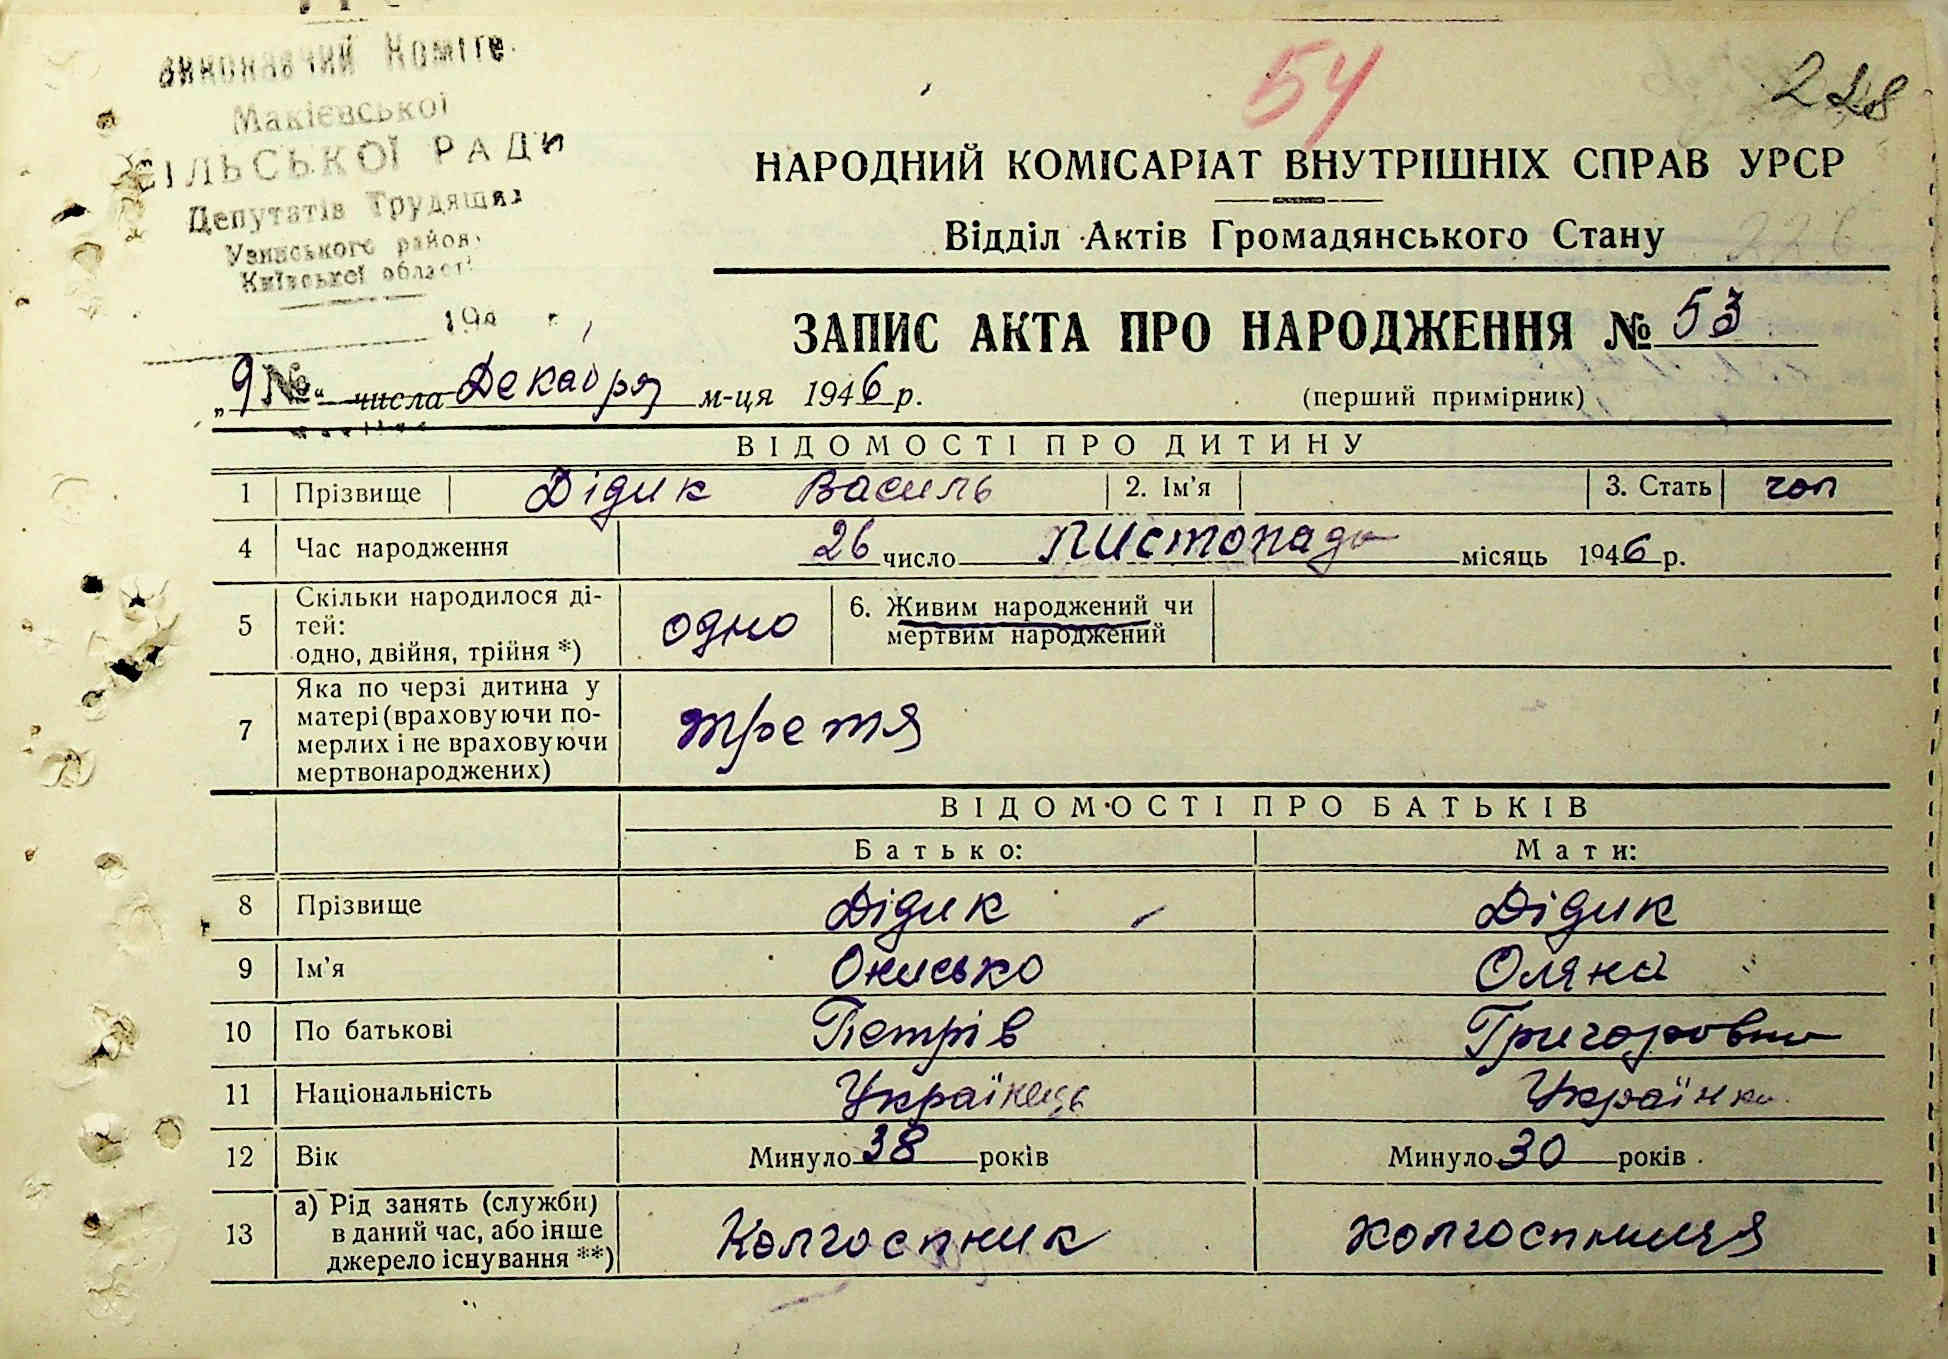 54
228
Виконавчий Коміте
Макієвської
СІЛЬСЬКОЇ РАДИ
Депутатів Трудящих
Київської області
194
НАРОДНИЙ КОМІСАРІАТ ВНУТРІШНІХ СПРАВ УРСР
Відділ Актів Громадянського Стану
226
ЗАПИС АКТА ПРО НАРОДЖЕННЯ № 53
„9 №“ числа Декабря м-ця 1946 р.
(перший примірник)
ВІДОМОСТІ ПРО ДИТИНУ
1 Прізвище Дідик Василь 2. Ім'я 3. Стать чол
4 Час народження 26 число листопада місяць 1946 р.
5 Скільки народилося ді-
тей:
одно, двійня, трійня *) одно 6. Живим народжений чи
мертвим народжений
7 Яка по черзі дитина у
матері (враховуючи по-
мерлих і не враховуючи
мертвонароджених) третя
ВІДОМОСТІ ПРО БАТЬКІВ
Батько: Мати:
8 Прізвище Дідик Дідик
9 Ім'я Онисько Оляна
10 По батькові Петрів Григоровна
11 Національність Українець Українка
12 Вік Минуло 38 років Минуло 30 років
13 а) Рід занять (служби)
в даний час, або інше
джерело існування **) Колгоспник колгоспниця